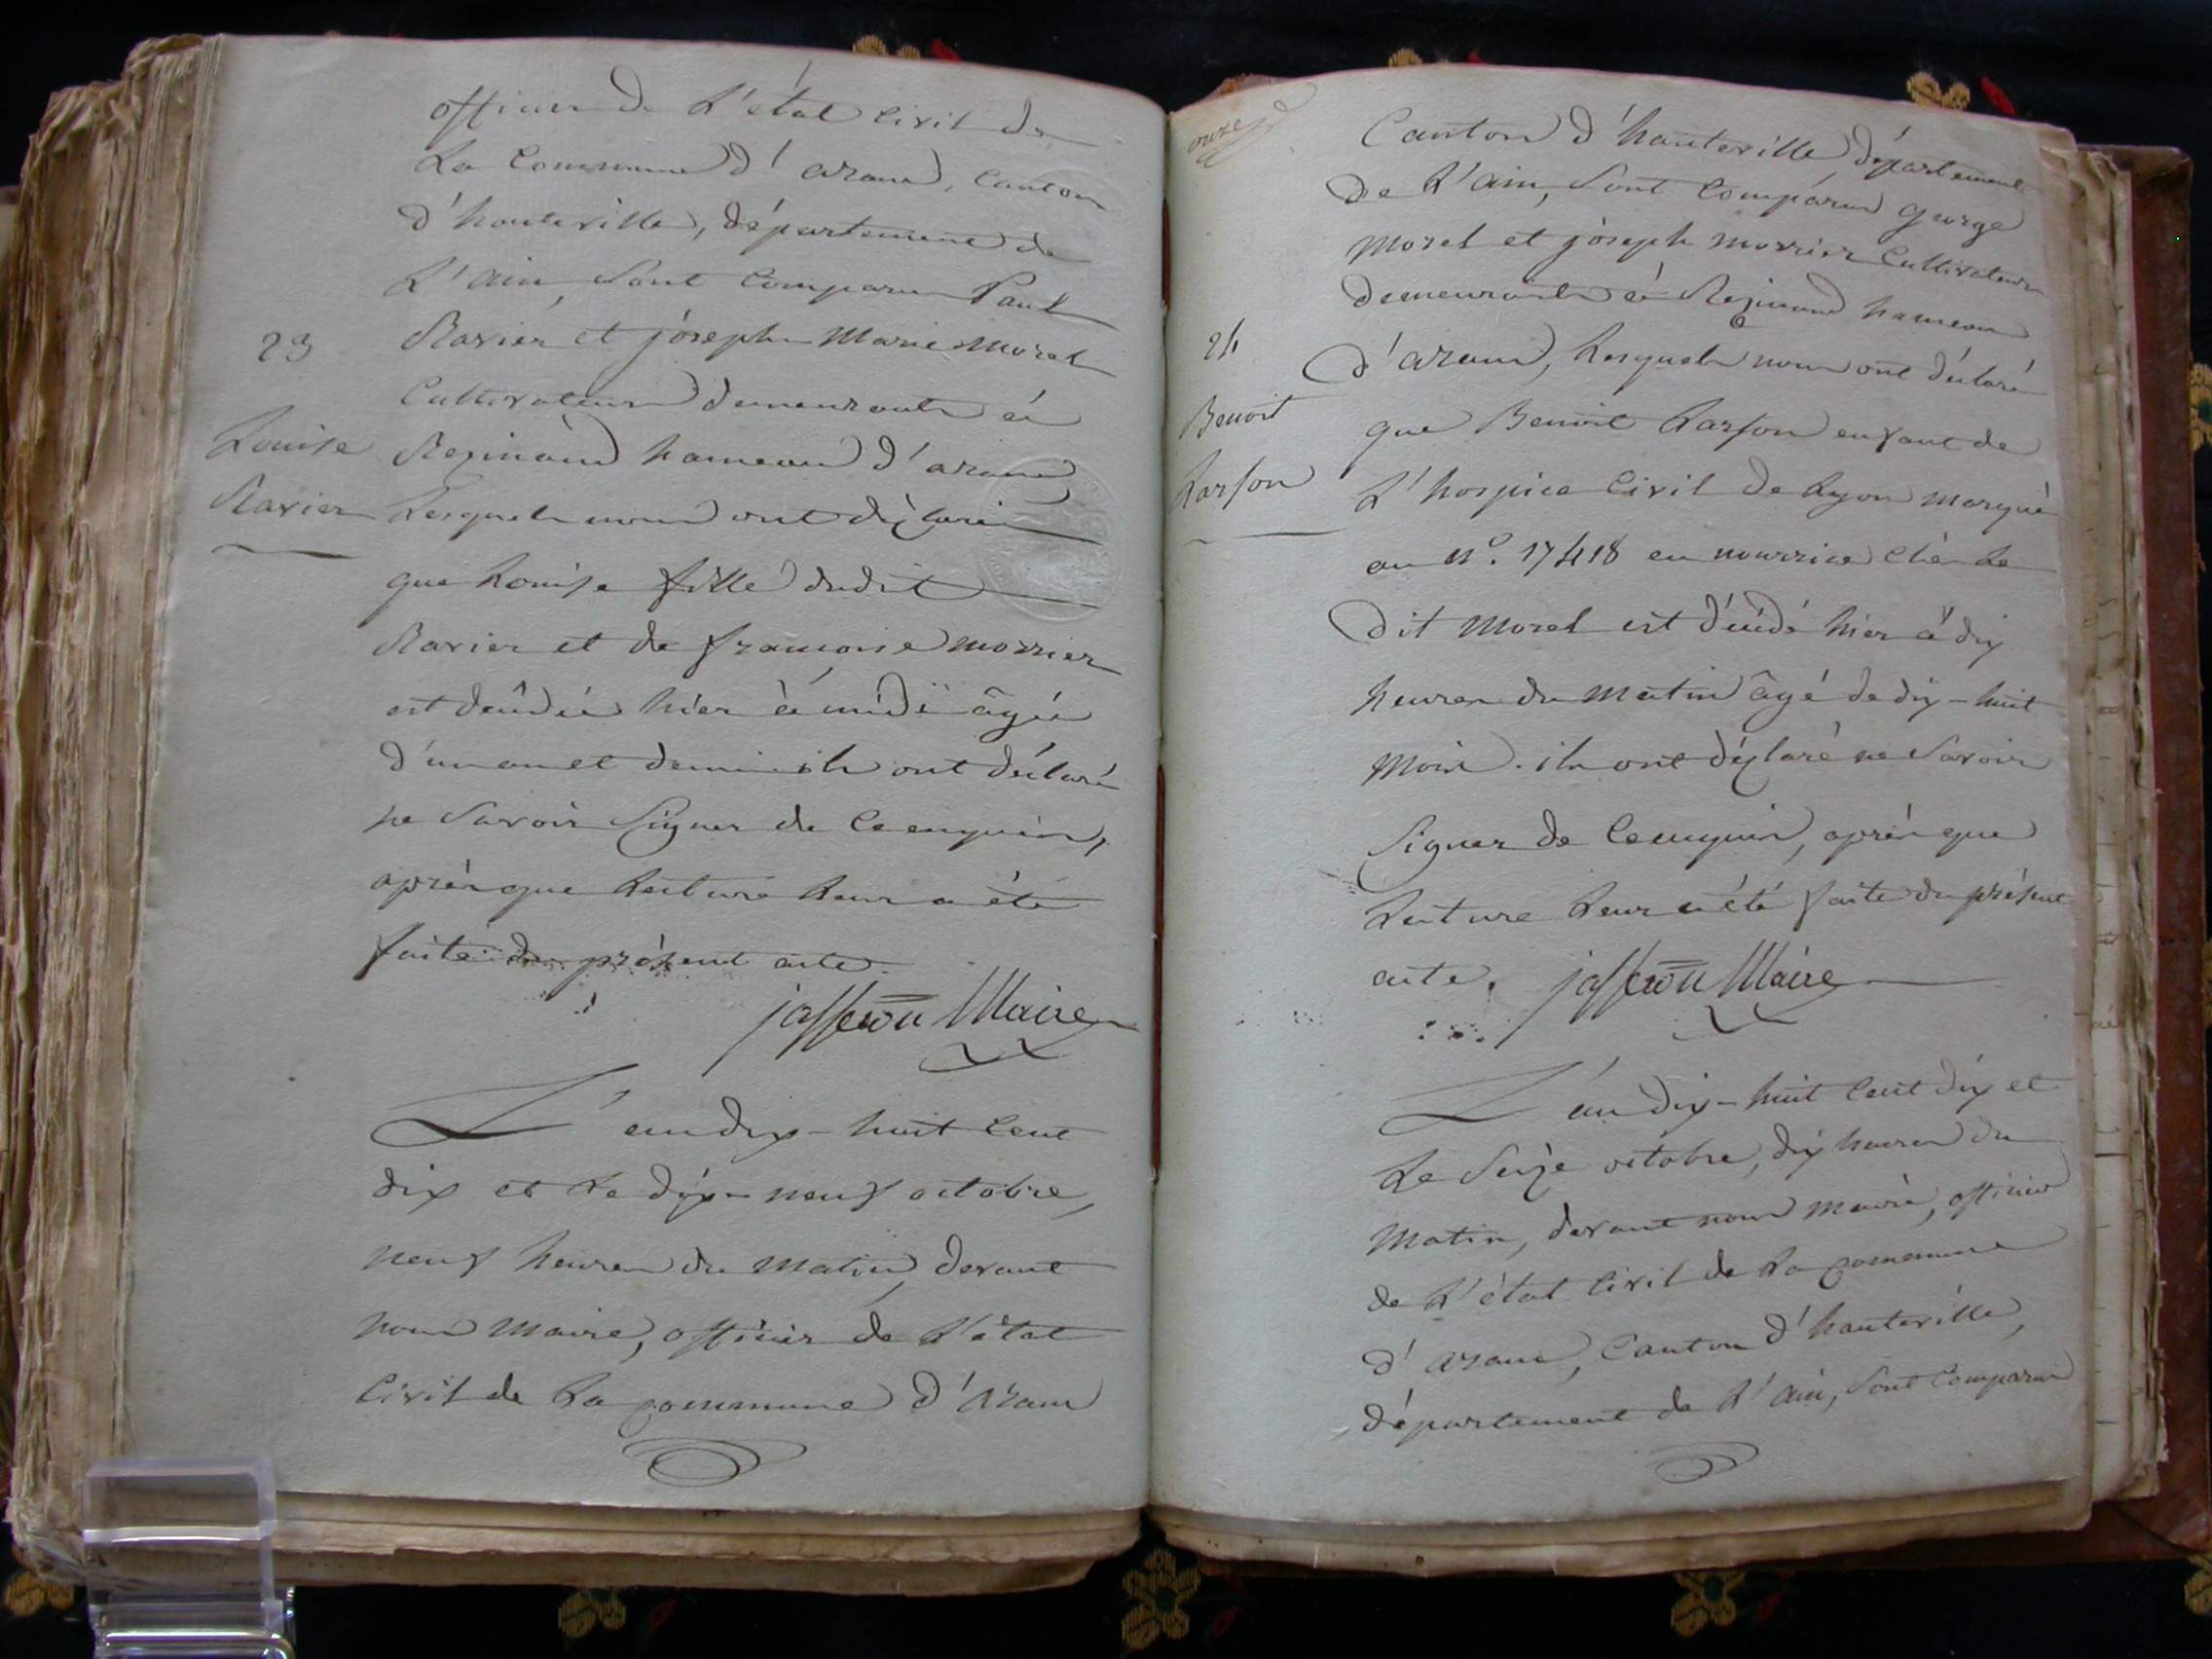 officier de L'état Civil de
La Commune d'arand, Canton
d'hauteville, département de
L'ain, Sont Comparus Paul
23
Ravier et joseph Marie Morel
Cultivateurs demeurants à
Louise
Resinand hameau d'arand
Ravier
Lesquels nous ont déclaré
que Louise fille dudit
Ravier et de françoise morrier
est décédée hier à midi âgée
d'un an et demi ils ont déclaré
ne Savoir Signer de Ce enquis,
après que Lecture Leur a été
faite du présent acte.
jasseron Maire
L'an dix-huit Cent
dix et Le dix-neuf octobre,
neuf heures du Matin, devant
nous Maire, officier de L'état
Civil de La commune d'Aran
onze
Canton d'hauteville, département
de L'ain, Sont Comparus george
Morel et joseph morrier Cultivateurs
demeurants à Resinand hameau
24
d'arand, Lesquels nous ont déclaré
Benoit
que Benoit Larson enfant de
Larson
L'hospice Civil de Lyon marqué
au n°. 17418 en nourrice chés Le
dit Morel est décédé hier à dix
heures du Matin âgé de dix-huit
Mois. ils ont déclaré ne Savoir
Signer de Ce enquis, après que
Lecture Leur a été faite du présent
acte. jasseron Maire
L'an dix-huit Cent dix et
Le Seize octobre, dix heures du
Matin, devant nous maire, officier
de L'état Civil de La commune
d'arand, Canton d'hauteville,
département de L'ain, Sont Comparus